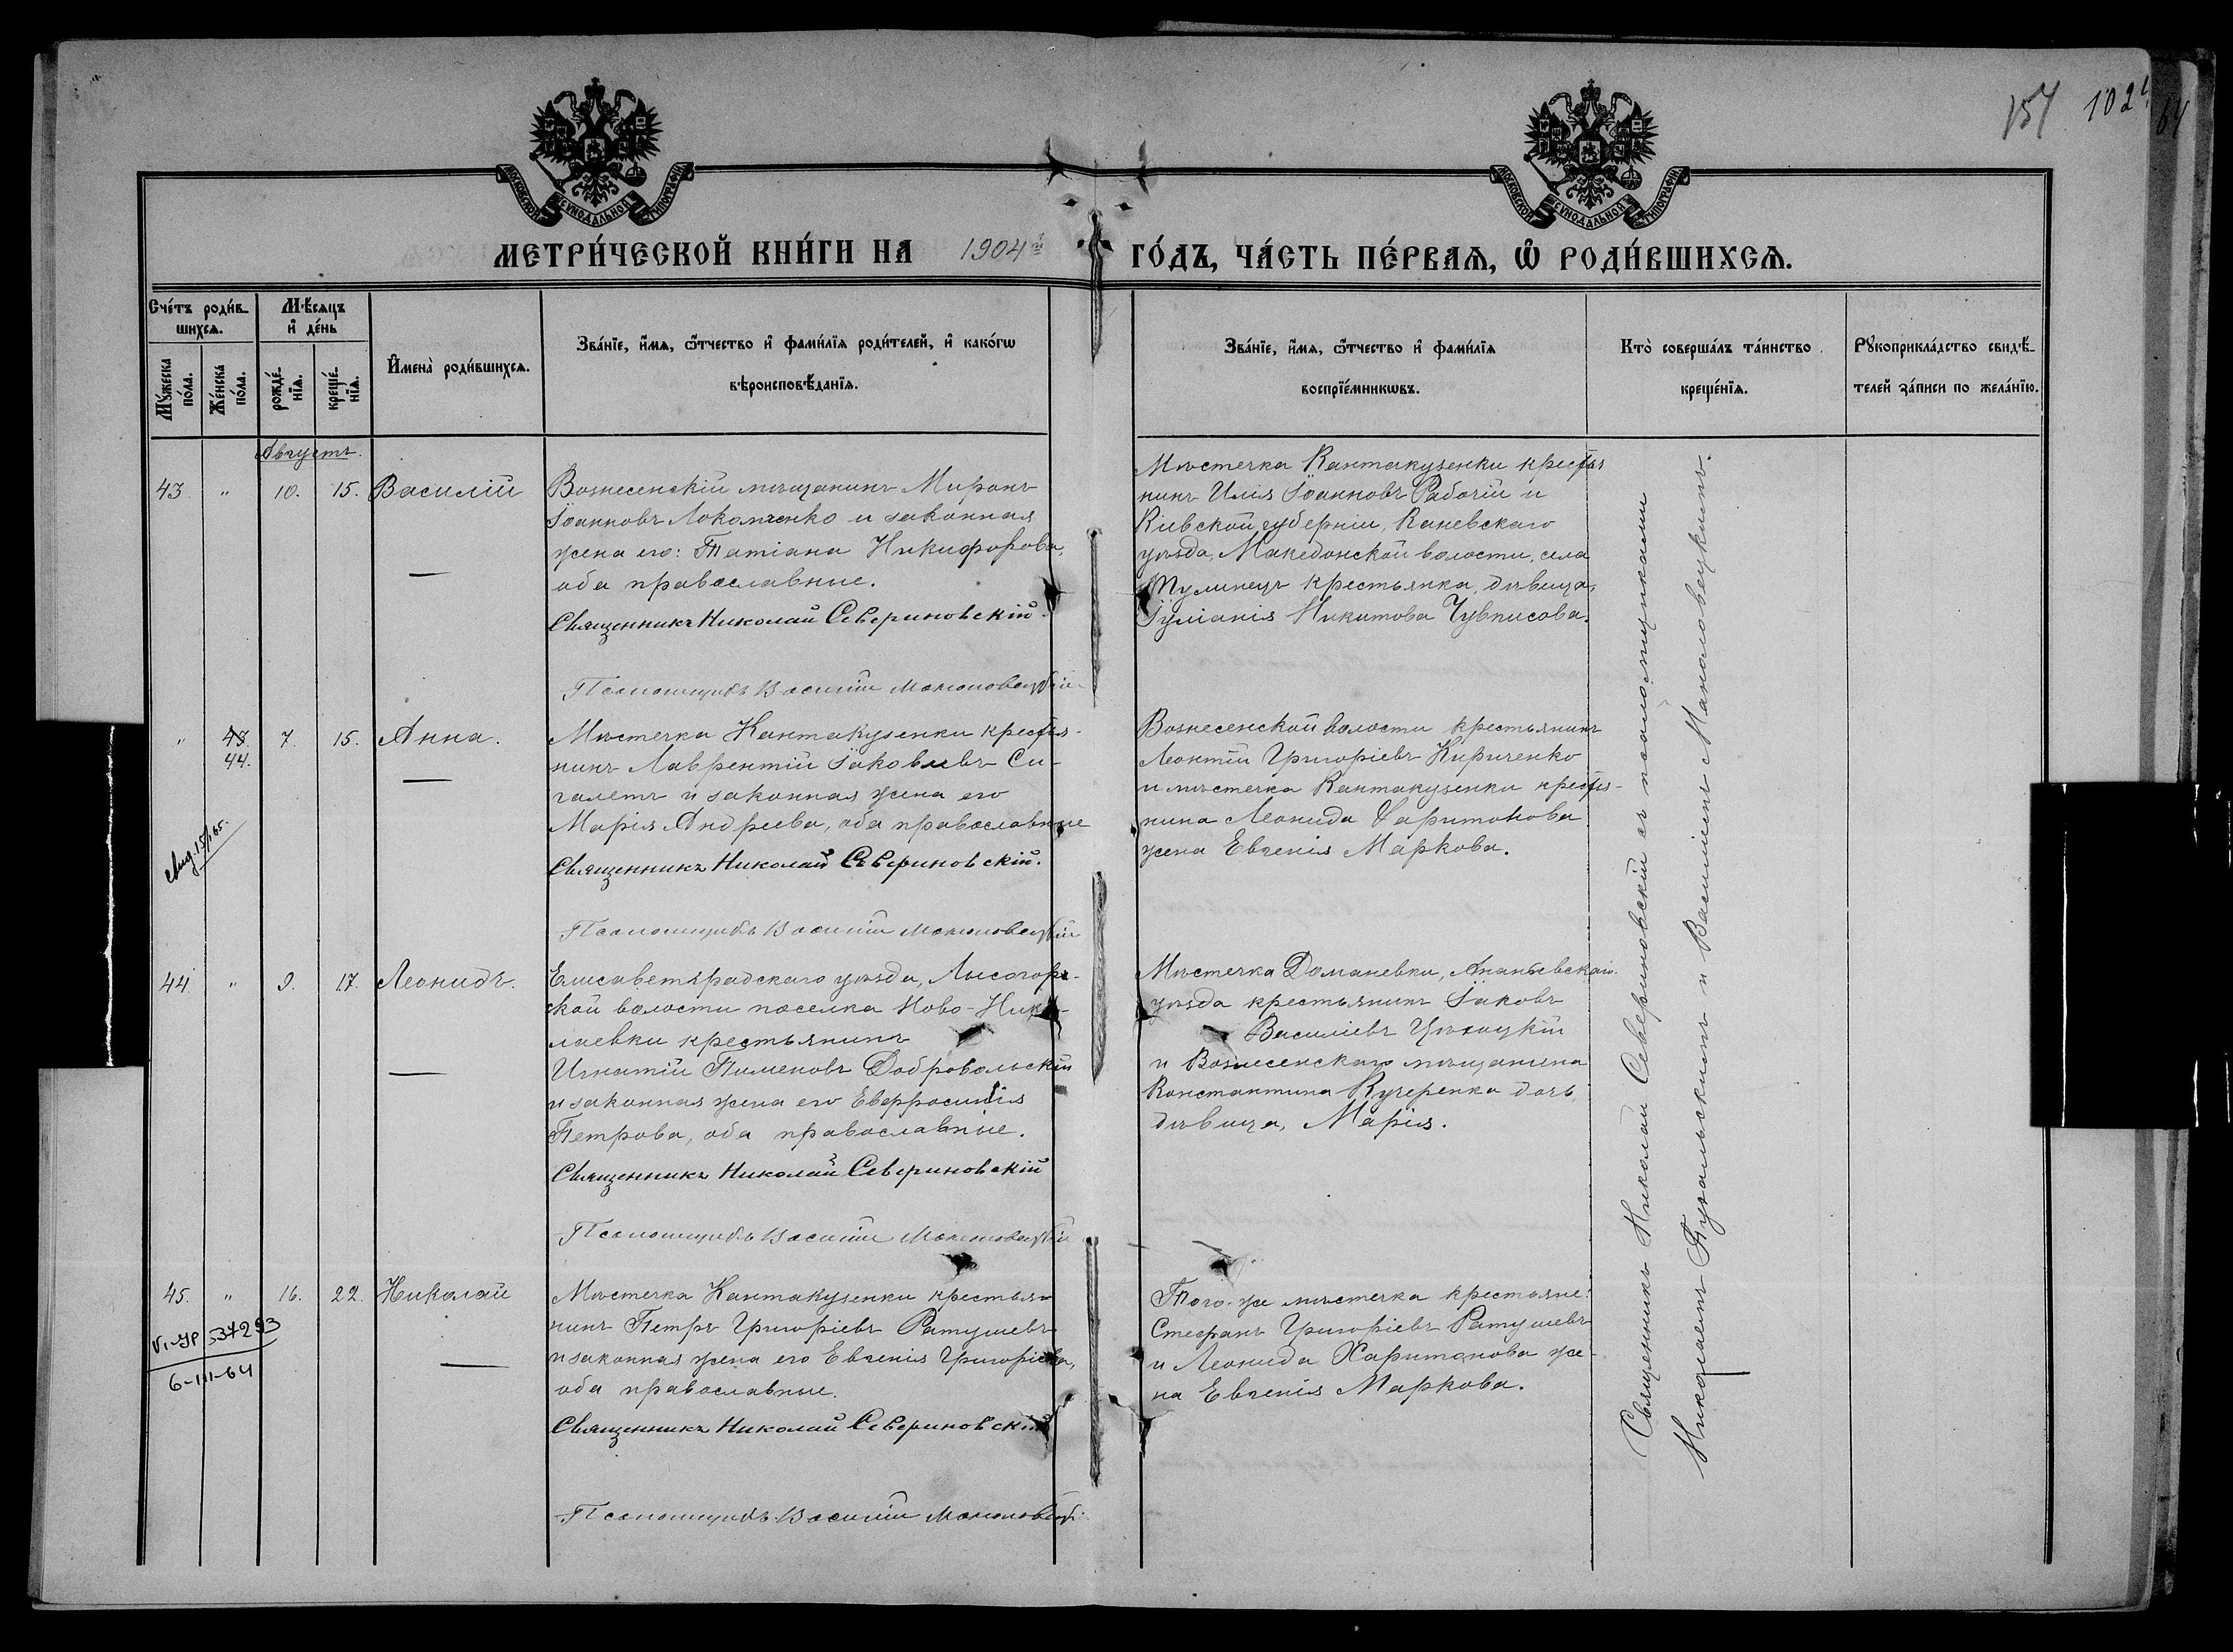 МОСКОВСКОЙ СѴНОДАЛЬНОЙ ТИПОГРАФІИ
МОСКОВСКОЙ СѴНОДАЛЬНОЙ ТИПОГРАФІИ
157 102 64
МЕТРИ́ЧЕСКОЙ КНИ́ГИ НА 1904й ГО́ДЪ, ЧА́СТЬ ПЕ́РВАЯ, Ѽ РОДИ́ВШИХСЯ.
Сче́тъ роди́в-
шихся.
Мꙋ́жеска по́ла.
Же́нска по́ла.
Мѣ́сяцъ и де́нь
рожде́нїя.
креще́нїя.
Имена̀ роди́вшихся.
Зва́нїе, и́мя, ѻ́тчество и фами́лїя роди́телей, и како́гѡ
вѣроисповѣ́данїя.
Зва́нїе, и́мя, ѻ́тчество и фами́лїя
воспрїе́мникѡвъ.
Кто̀ соверша́лъ та́инство
креще́нїя.
Рꙋкоприкла́дство свидѣ́-
телей за́писи по жела́нїю.
Августъ.
43. " 10. 15. Василій
Вознесенскій мѣщанинъ Миронъ
Іоанновъ Локотченко и законная
жена его: Татіана Никифорова,
оба православные.
Священникъ Николай Севериновскій.
Псаломщикъ Василій Маноловецкій
Мѣстечка Кантакузенки крестья
нинъ Илія Іоанновъ Рабочій и
Кіевской губерніи, Каневскаго
уѣзда, Македонской волости, села
Тулинецъ крестьянка, дѣвица,
Іуліанія Никитова Чувписова.
" 43. 44. 7. 15. Анна.
Мѣстечка Кантакузенки крестья-
нинъ Лаврентій Іаковлевъ Си-
галетъ и законная жена его
Марія Андреева, оба православные
Священникъ Николай Севериновскій.
Псаломщикъ Василій Маноловецкій
Вознесенской волости крестьянинъ
Леонтій Григоріевъ Кириченко
и мѣстечка Кантакузенки крестья-
нина Леонида Харитонова
жена Евгенія Маркова.
44. " 9. 17. Леонидъ.
Елисаветградскаго уѣзда, Лысогор-
ской волости поселка Ново-Нико-
лаевки крестьянинъ
Игнатій Пименовъ Добровольскій
и законная жена его Евфросинія
Петрова, оба православные.
Священникъ Николай Севериновскій
Псаломщикъ Василій Маноловецкій
Мѣстечка Доманевки, Ананьевскаго
уѣзда крестьянинъ Іаковъ
Василіевъ
и Вознесенскаго мѣщанина
Константина Кучеренка дочь,
дѣвица, Марія.
45. " 16. 22. Николай
537293
6-III-64
Мѣстечка Кантакузенки крестьян
нинъ Петръ Григоріевъ Ратушевъ
и законная жена его Евгенія Григоріева,
оба православные.
Священникъ Николай Севериновскій
Псаломщикъ Василій Маноловецкі
Того-же мѣстечка крестьяне:
Стефанъ Григоріевъ Ратушевъ
и Леонида Харитонова же-
на Евгенія Маркова.
Священникъ Николай Севериновскій съ псаломщиками
Николаемъ и Василіемъ Маноловецкимъ.